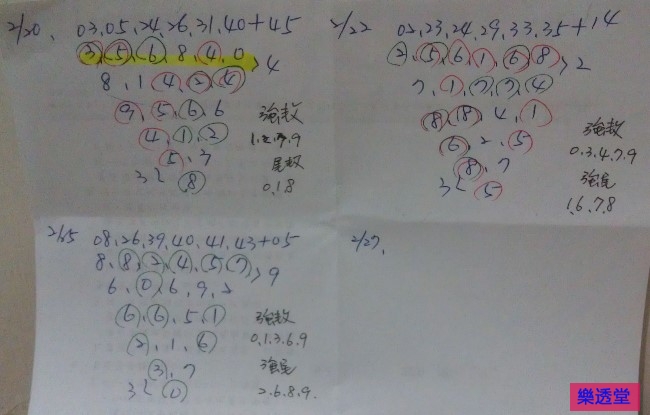 2/20. 03.05.24.26.31.40+45
3.5.6.8.4.0>4
8.1.4.2.4
9.5.6.6
4.1.2
5.7
3<8
強数
尾数
0.1.8
2/22 02.23.24.29.33.35+14
2.5.6.1.6.8>2
7.1.7.7.4
8.8.4.1
6.2.5
8.7
3<5
強数
0.3.4.7.9
強尾
1.6.7.8
2/25 08.26.39.40.41.43+05
8.8.2.4.5.7>9
6.0.6.9.2
6.6.5.1
2.1.6
3.7
3<0
強数
0.1.3.6.9
強尾
2.6.8.9.
2/27.
樂透堂